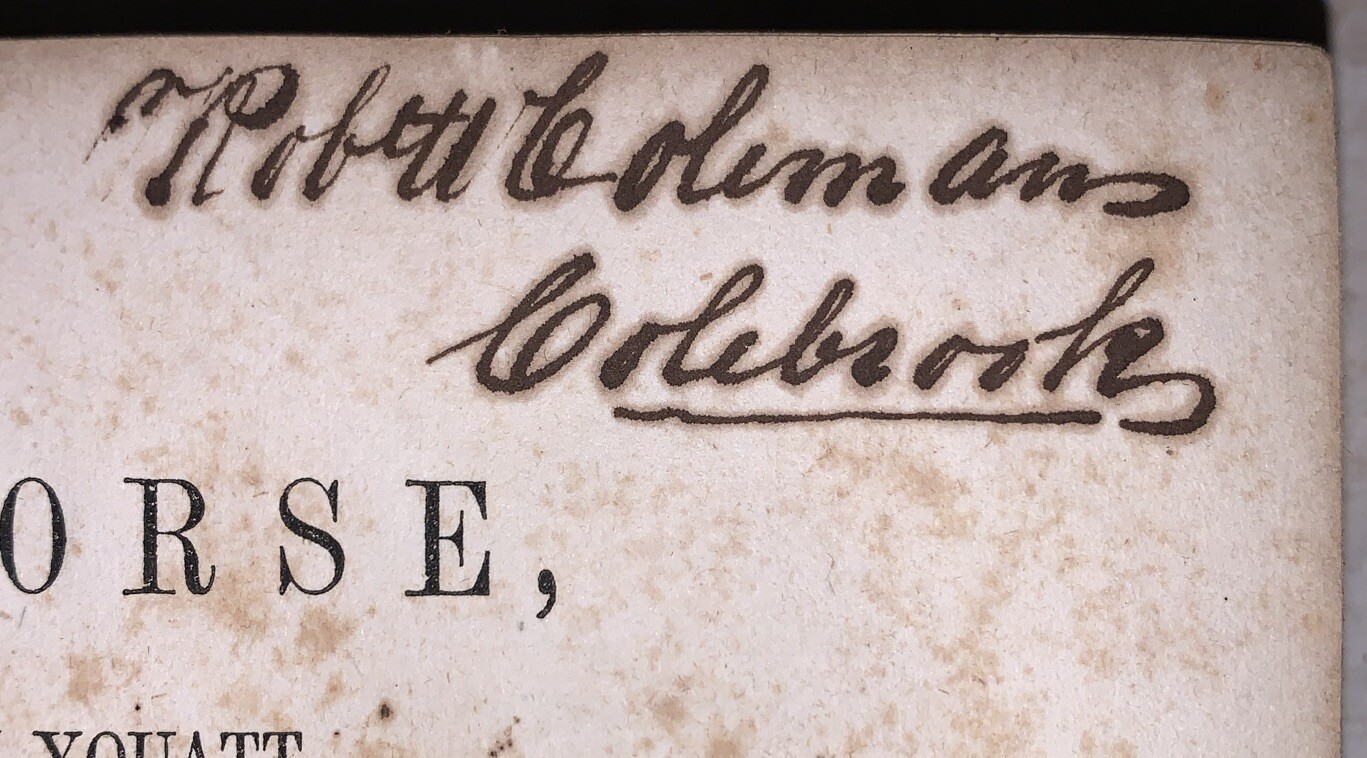 Robt H Colemans
Colebrook
ORSE,
YOUATT